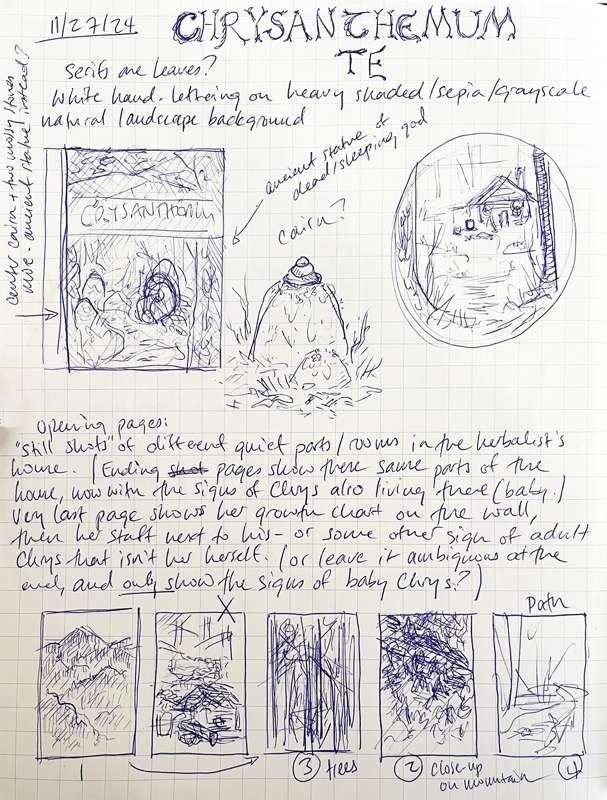 11/27/24
CHRYSANTHEMUM
TE
serifs are leaves?
white hand-lettering on heavy shaded/sepia/grayscale
natural landscape background
center cairn + two mossy stones
more ancient statue instead?
ancient statue of
dead/sleeping god
CHRYSANTHEMUM
cairn?
Opening pages:
"still shots" of different quiet parts/rooms in the herbalist's
home. (Ending shot pages show these same parts of the
house, now with the signs of Chrys also living there (baby.)
Very last page shows her growth chart on the wall,
then her staff next to his - or some other sign of adult
Chrys that isn't her herself. (or leave it ambiguous at the
end, and only show the signs of baby Chrys?)
X
Path
1
3 trees
2 close-up
on mountain
4